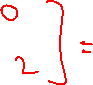 0
2 ] =